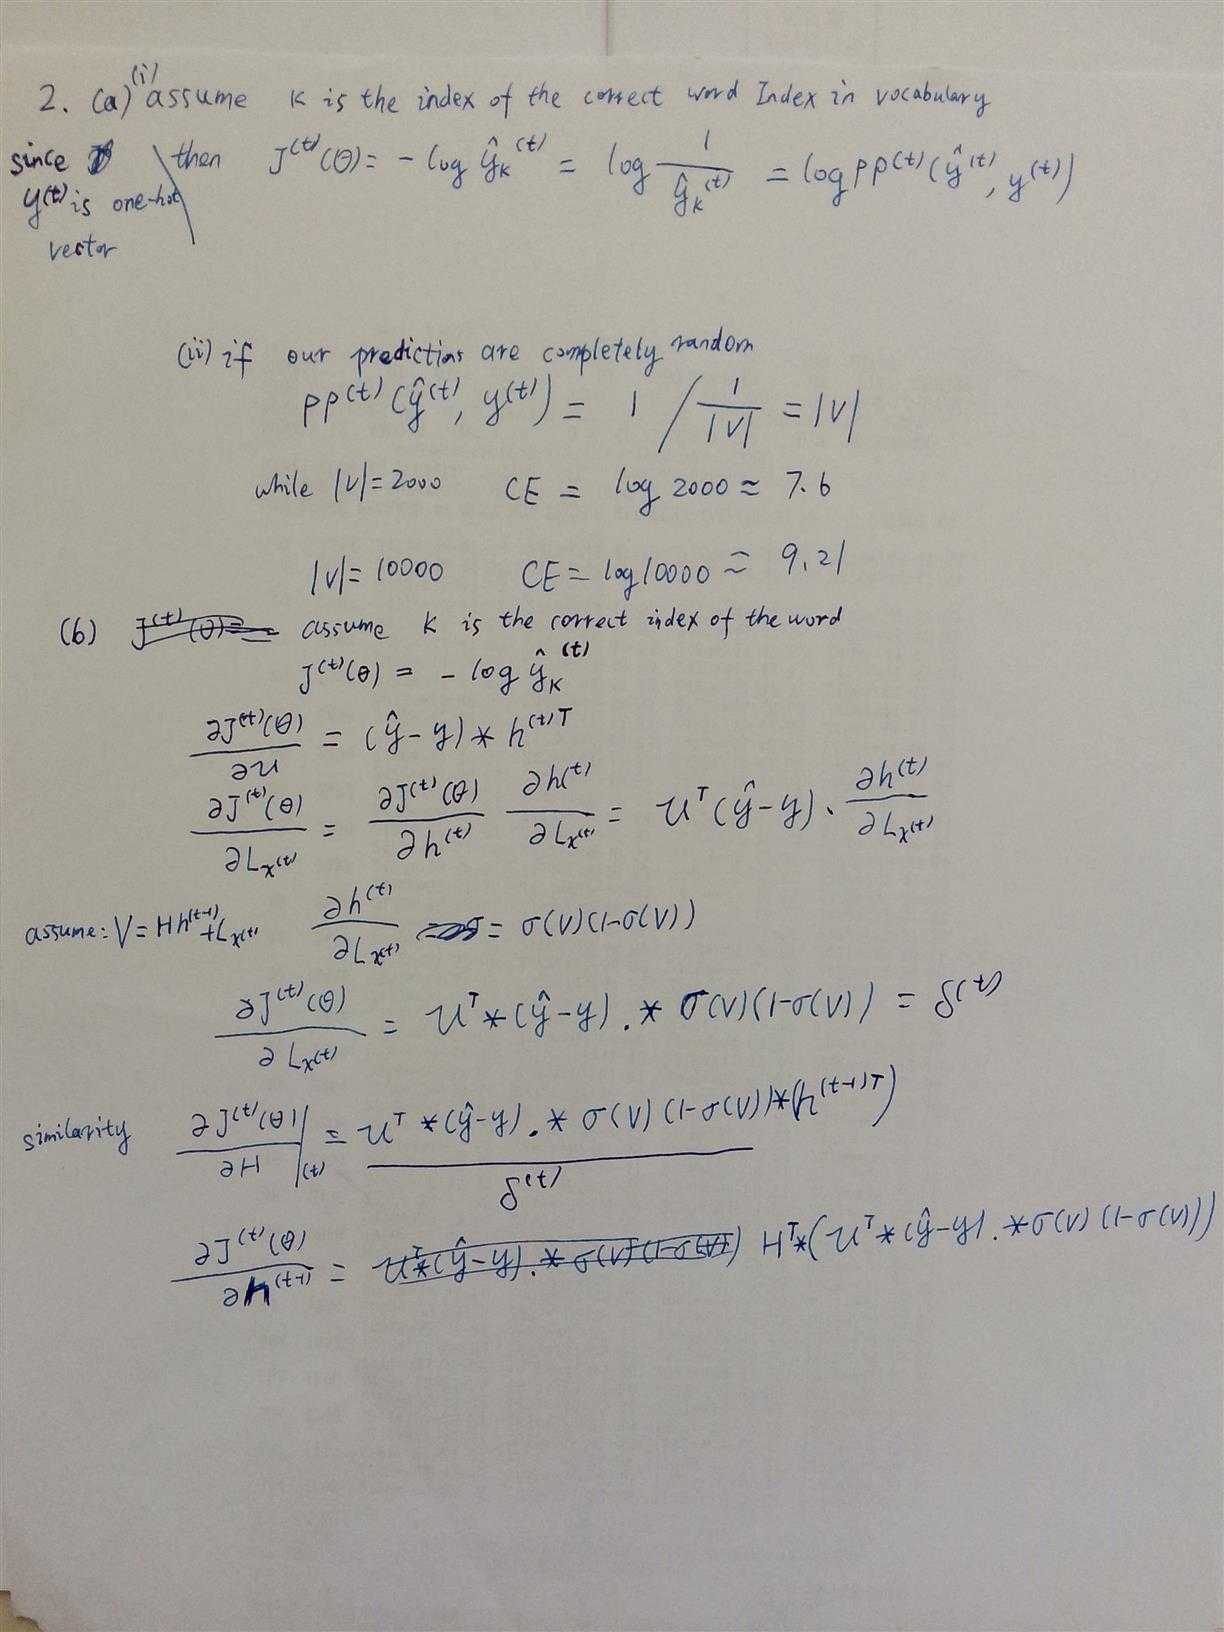 2. (a) (i) assume K is the index of the correct word Index in vocabulary
since y^(t) is one-hot vector then J^(t)(θ) = - log ŷ_K^(t) = log 1/ŷ_K^(t) = log PP^(t)(ŷ^(t), y^(t))
(ii) if our predictions are completely random
PP^(t)(ŷ^(t), y^(t)) = 1 / 1/|V| = |V|
while |V| = 2000 CE = log 2000 ≈ 7.6
|V| = 10000 CE = log 10000 ≈ 9.21
(b) assume K is the correct index of the word
J^(t)(θ) = - log ŷ_K^(t)
∂J^(t)(θ)/∂U = (ŷ-y) * h^(t)T
∂J^(t)(θ)/∂L_x^(t) = ∂J^(t)(θ)/∂h^(t) ∂h^(t)/∂L_x^(t) = U^T(ŷ-y) · ∂h^(t)/∂L_x^(t)
assume: V = Hh^(t-1) + L_x^(t) ∂h^(t)/∂L_x^(t) = σ(V)(1-σ(V))
∂J^(t)(θ)/∂L_x^(t) = U^T * (ŷ-y) .* σ(V)(1-σ(V)) = δ^(t)
similarity ∂J^(t)(θ)/∂H |_(t) = U^T * (ŷ-y) .* σ(V)(1-σ(V)) * (h^(t-1)T)
δ^(t)
∂J^(t)(θ)/∂h^(t-1) = H^T * (U^T * (ŷ-y) .* σ(V)(1-σ(V)))